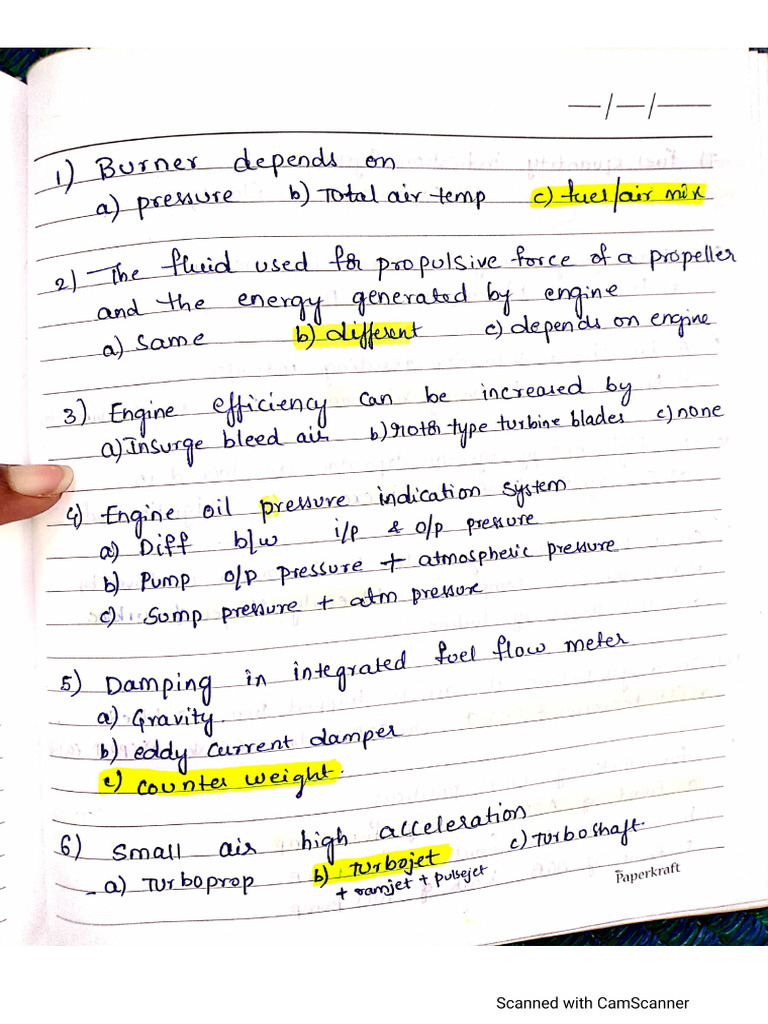 —/—/—
1) Burner depends on
a) pressure b) Total air temp c) fuel/air mix
2) The fluid used for propulsive force of a propeller
and the energy generated by engine
a) same b) different c) depends on engine
3) Engine efficiency can be increased by
a) Insurge bleed air b) rotor type turbine blades c) none
4) Engine oil pressure indication system
a) Diff b/w i/p & o/p pressure
b) Pump o/p pressure + atmospheric pressure
c) Sump pressure + atm pressure
5) Damping in integrated fuel flow meter
a) Gravity.
b) eddy current damper
c) counter weight.
6) Small air high acceleration
a) Turboprop b) Turbojet c) Turboshaft.
+ ramjet + pulsejet
Paperkraft
Scanned with CamScanner